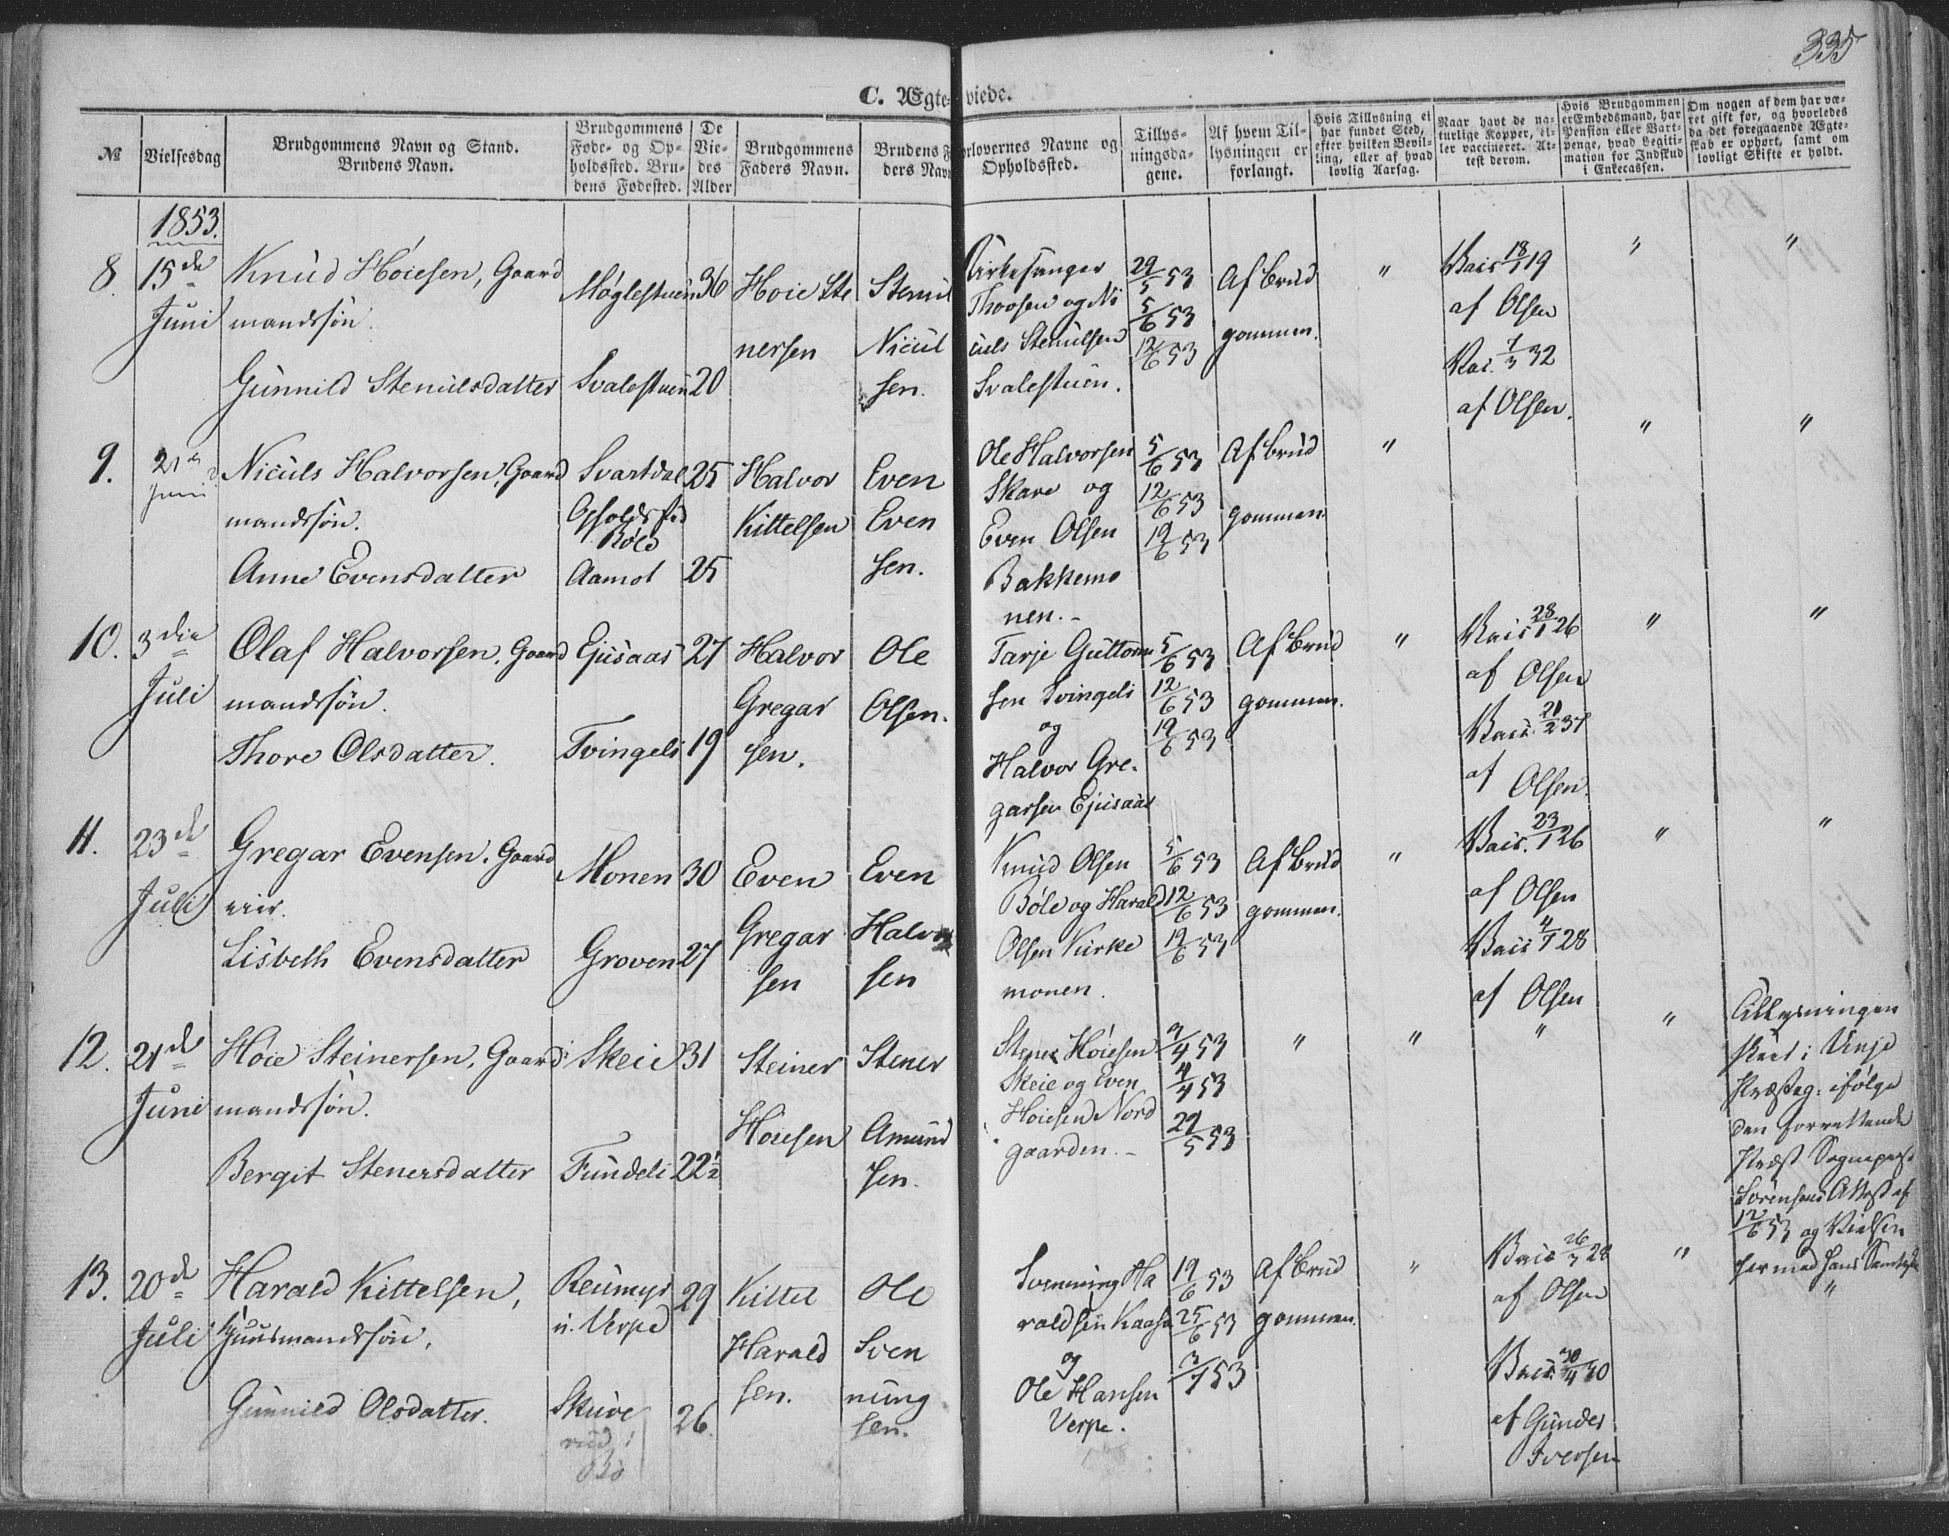 335
C. Ægteviede.
№
Vielsesdag
Brudgommens Navn og Stand.
Brudens Navn.
Brudgommens
Føde- og Op-
holdssted. Bru-
dens Fødested.
De
Vie-
des
Alder
Brudgommens
Faders Navn.
Brudens F
ders Navn
orlovernes Navne og
Opholdssted.
Tillys-
ningsda-
gene.
Af hvem Til-
lysningen er
forlangt.
Hvis Tillysning ei
har fundet Sted,
efter hvilken Bevil-
ling, eller af hvad
lovlig Aarsag.
Naar havt de na-
turlige Kopper, el-
ler vaccineret. At-
test derom.
Hvis Brudgommen
er Embedsmand, har
Pension eller Vart-
penge, hvad Legiti-
mation for Indskud
i Enkecassen.
Om nogen af dem har væ-
ret gift før, og hvorledes
da det foregaaende Ægte-
skab er ophørt, samt om
lovligt Skifte er holdt.
1853.
8. 15de Juni
Knud Høiesen, Gaard
mandssøn.
Gunnild Steniulsdatter
Møglestuen 36
Svalestuen 20
Hoie Ste
nersen
Steniul
Niciul
sen.
Kirkesanger
Thoosen og Ni
culs Steniulsen
Svalestuen.
29/5 53
5/6 53
12/6 53
Af Brud
gommen.
"
Vaic 18/1 19
af Olsen
Vai. 7/3 32
af Olsen.
"
"
9. 21de Juni
Niculs Halvorsen, Gaard
mandssøn.
Anne Evensdatter
Svartdal 25
Opholdssted
Bøle
Aamot 25
Halvor
Kittelsen
Even
Even
sen.
Ole Halvorsen
Skare og
Even Olsen
Bakkemo
nen.-
5/6 53
12/6 53
19/6 53
Af Brud
gommen
"
"
"
10. 3die Juli
Olaf Halvorsen, Gaard
mandssøn.
Thore Olsdatter.
Ejusaas 27
Tvingeli 19
Halvor
Gregar
sen.
Ole
Olsen.
Tarje Guttorm
sen Tvingeli
og
Halvor Gre-
garsen Ejusaas
5/6 53
12/6 53
19/6 53
Af Brud
gommen.
"
Vaic 28/1 26
af Olsen
Vaic. 21/2 37
af Olsen.
"
"
11. 23de Juli
Gregar Evensen, Gaard
eier.
Lisbeth Evensdatter
Monen 30
Groven 27
Even
Gregar
sen
Even
Halvor
sen
Knud Olsen
Bøle og Harald
Olsen Kirke
monen.
5/6 53
12/6 53
19/6 53
Af Brud
gommen.
"
Vaic. 23/1 26
af Olsen
Vaic 4/1 28
af Olsen
"
"
12. 21de Juni
Høie Steinersen, Gaard
mandssøn.
Bergit Stenersdatter
Skeie 31
Fundeli 22½
Steiner
Hoiesen
Stener
Amund
sen.
Stener Høiesen
Skeie og Even
Hoiesen Nord
gaarden.-
3/4 53
4/4 53
29/5 53
"
"
"
"
Tillysningen
skeet i Vinje
Præsteg: ifølge
den forrettende
Præst Sognepræst
Sørensens Attest af
12/6 53 og Vielsen
her med hans Samtykke
13. 20de Juli
Harald Kittelsen,
Huusmandssøn.
Gunnild Olsdatter.
Reumyr
u. Verpe 29
Skuve
rud i
Bø 26
Kittel
Harald
sen.
Ole
Sven
nung
sen.
Svenning Ha
raldsen Kaasa
og
Ole Hansen
Verpe.
19/6 53
25/6 53
3/7 53
Af Brud
gommen.
"
Vaic 26/3 28
af Olsen
Vaic. 30/4 30
af Gunder
Iversen
"
"